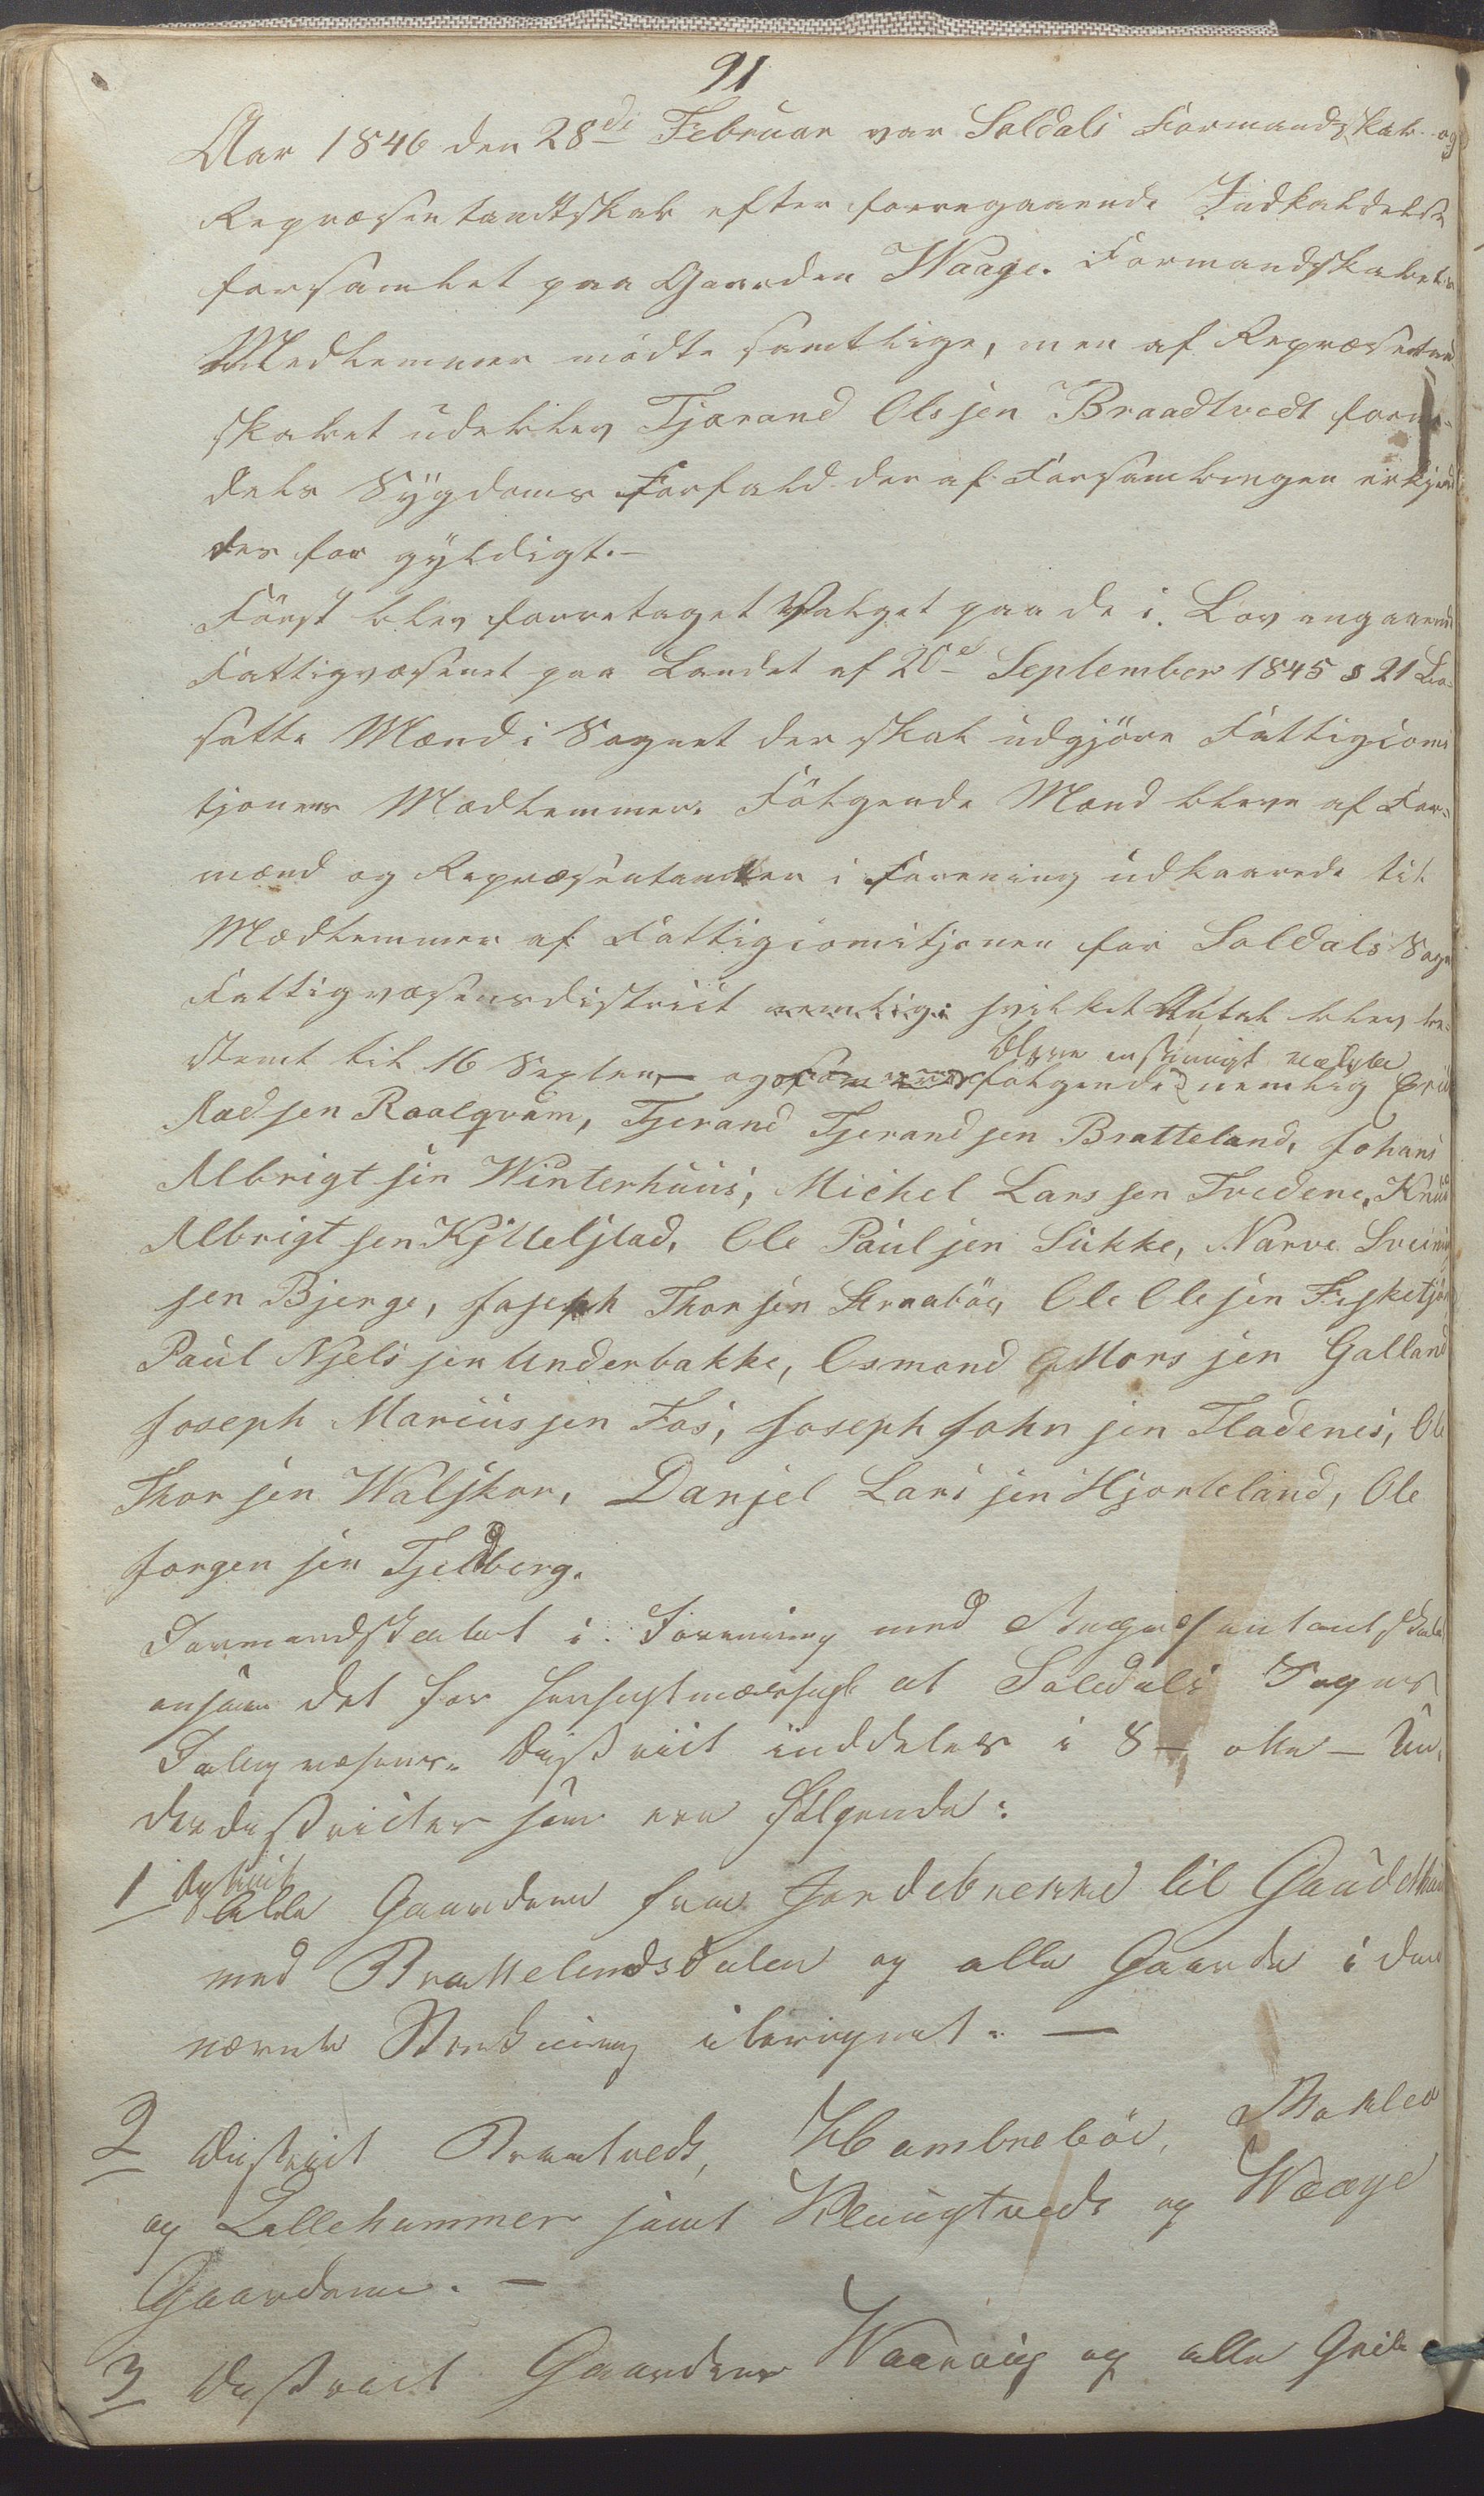 91
Aar 1846 den 28de Februar var Soldals Formandskab og
Repræsentandtskab efter forregaaende Indkaldelse
forsamlet paa Gaarden Waage. Formandskabets
Medlemmer mödte samtlige, men af Repræsentand
skabet udeblev Tjærand Olssen Braadtvedt forme-
dels Sygdoms Forfald der af Forsamlingen erkjend
des for gyldigt.-
Först blev forretaget Valget paa de i Lov angaaende
Fattigvæsenet paa Landet af 20de September 1845 § 21 Bo-
satte Mænd i Sognet der skal udgjöre Fattigcomi
tjonens Medlemmer. Fölgende Mænd bleve af For-
mænd og Repræsentanter i Forening udkaarede til
Medlemmer af Fattigcomitjonen for Soldals Sogn
Fattigvæsensdistrict nemlig: hvilket Antal blev be-
bleve enstemigt valgte
stemt til 16 Sexten, og fölgende nemlig Erik
Aadsen Roalqvam, Tjerand Tjerandsen Bratteland, Johans
Albrigtsen Winterhuus, Michel Larssen Tvedene, Knud
Albrigtsen Kjittelstad, Ole Paulsen Sukke, Narve Svein
sen Bjerge, Joseph Thorsen Straabö, Ole Olesen Fisketjön
Paul Njelssen Underbakke, Osmond Monssen Galland
Joseph Mariussen Fos, Joseph Johnsen Fladenes, Ole
Thorsen Walskar, Danjel Larssen Hjorteland, Ole
Jorgensen Tjeldberg.
Formandskabet i Forening med Repræsentantskabet
ansaae det for hensigtmæssigt at Soldals Sogns
Fattigvæsens District inddeles i 8 - otte - Un-
derdistricter som ere Fölgende:
1 District
Alle Gaardene fra Jordebrekke til
med Brattelandsdalen og alle Gaarde i den
nævnte Strekning iberegnet. -
2 District Braatveds, Hambrebö,
og Lillehammer samt Klungtveds og Waage
Gaardene. -
3 District Gaardene og alle